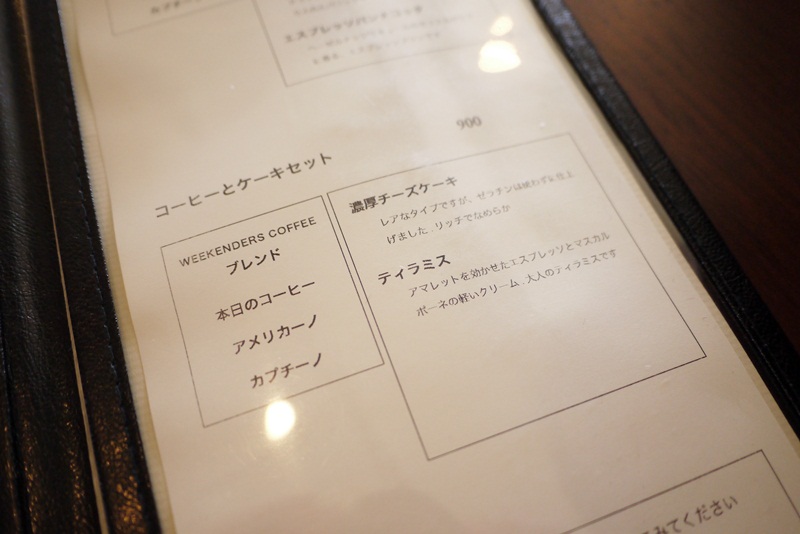 エスプレッソパンナコッタ
900
コーヒーとケーキセット
WEEKENDERS COFFEE
ブレンド
本日のコーヒー
アメリカーノ
カプチーノ
濃厚チーズケーキ
レアなタイプですが、ゼラチンは使わずに仕上
げました．リッチでなめらか
ティラミス
アマレットを効かせたエスプレッソとマスカル
ポーネの軽いクリーム．大人のティラミスです
みてください